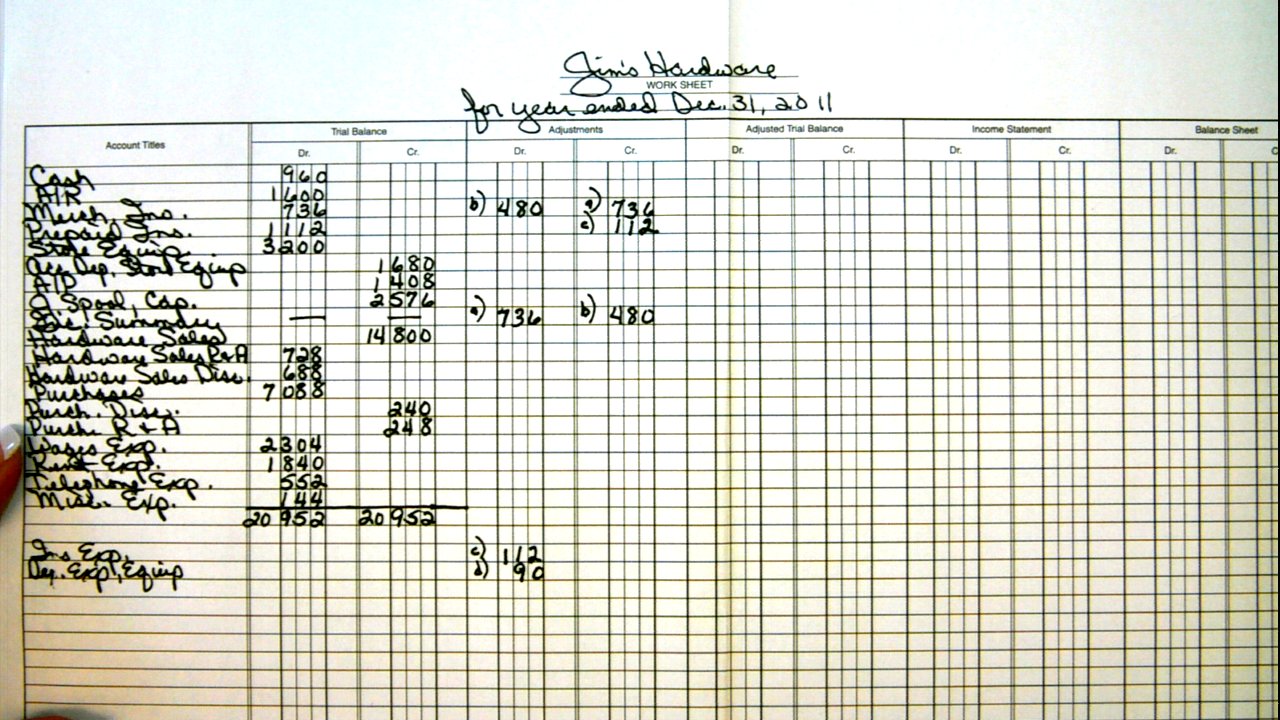 Jim's Hardware
WORK SHEET
for year ended Dec. 31, 2011
Account Titles Trial Balance Adjustments Adjusted Trial Balance Income Statement Balance Sheet
Dr. Cr. Dr. Cr. Dr. Cr. Dr. Cr. Dr. C
Cash 960
A/R 1600
Merch. Ins. 736 b) 480 a) 736
Prepaid Ins. 1112 c) 112
Store Equip. 3200
Acc. Dep. Store Equip 1680
A/P 1408
J. Spool, Cap. 2576
Inc. Summary — — a) 736 b) 480
Hardware Sales 14800
Hardware Sales R+A 728
Hardware Sales Disc. 688
Purchases 7088
Purch. Disc. 240
Purch. R+A 248
Wages Exp. 2304
Rent Exp. 1840
Telephone Exp. 552
Misc. Exp. 144
20952 20952
Ins Exp. c) 112
Dep. Exp, Equip d) 90